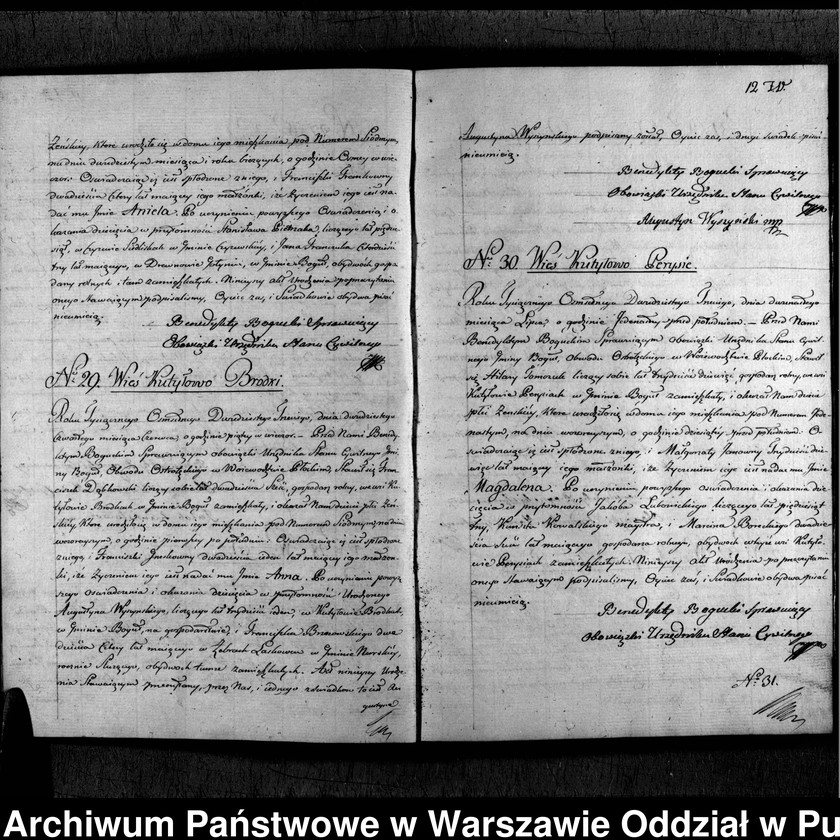 Żeńskiey, które urodziło się w domu iego mieszkania pod Numerem Siódmym,
na dniu dwudziestym miesiąca i roku bieżących, o godzinie Ósmey w wie-
czor. Oświadczaiąc iż iest spłodzone z niego, i Franciszki
dwadzieścia cztery lat maiącey iego małżonki, iż życzeniem iego iest na-
dać mu Imie Aniela. Po uczynieniu powyższego Oświadczenia i o-
kazaniu dziecięcia w przytomności Stanisława Pietrzaka, liczącego lat
w Gminie Czyżewskiey, i Jana
trzy lat maiącego, w Drewnowie w Gminie Boguty, obydwóch gospo-
darzy rolnych i tam zamieszkałych. Ninieyszy Akt Urodzenia po przeczytaniu
onego Stawaiącym podpisaliśmy, Oyciec zaś, i Świadkowie obydwa pisać
nieumieią.
Benedykty Bogucki Sprawuiący
Obowiązki Urzędnika Stanu Cywilnego
No. 29. Wieś Kutyłowo Brodki.
Roku Tysiącznego Ósmsetnego Dwudziestego Trzeciego, dnia dwudziestego
czwartego miesiąca Czerwca, o godzinie piątey w wieczor. – Przed Nami Benedy-
ktym Boguckim Sprawuiącym obowiązki Urzędnika Stanu Cywilnego Gmi-
ny Boguty Obwodu Ostrołęckiego w Woiewództwie Płockim, Stawił się Fran-
ciszek Dąbkowski liczący sobie lat dwadzieścia Sześć, gospodarz rolny, we wsi Ku-
tyłowie Brodkach w Gminie Boguty zamieszkały, i okazał Nam dziecie płci Żeń-
skiey, które urodziło się w domu iego mieszkania pod Numerem Siódmym, na dniu
wczorayszym, o godzinie pierwszey po południu. Oświadczaiąc iż iest spłodzone
z niego, i Franciszki dwadzieścia ieden lat maiącey iego małżon-
ki, iż życzeniem iego iest nadać mu Imie Anna. Po uczynieniu powyż-
szego oświadczenia i okazaniu dziecięcia w przytomności Urodzonego
Augustyna Wyszyńskiego, liczącego lat trzydzieści ieden, w Kutyłowie Brodkach,
w Gminie Boguty, na gospodarstwie, i Franciszka dwa-
dzieścia cztery lat maiącego w Zębrach Laskowcu w Gminie Nurskiey,
rocznie służącego, obydwóch tamże zamieszkałych. Akt ninieyszy Urodze-
nia Stawaiącym przeczytany, przez Nas, i iednego z świadków to iest Au-
gustyna
12
Augustyna Wyszyńskiego podpisany został, Oyciec zaś, i drugi świadek pisać
nieumieią.
Benedykty Bogucki Sprawuiący
Obowiązki Urzędnika Stanu Cywilnego
Augustyn Wyszyński mp
No. 30. Wieś Kutyłowo Perysie.
Roku Tysiącznego Ósmsetnego Dwudziestego Trzeciego, dnia dwunastego
miesiąca Lipca, o godzinie Jedenastey przed południem. – Przed Nami
Benedyktym Boguckim Sprawuiącym obowiązki Urzędnika Stanu Cywil-
nego Gminy Boguty, Obwodu Ostrołęckiego w Woiewództwie Płockim, Stawił
się Hilary liczący sobie lat trzydzieści dziewięć, gospodarz rolny, we wsi
Kutyłowie Perysiach w Gminie Boguty zamieszkały, i okazał Nam dziecie
płci Żeńskiey, które urodziło się w domu iego mieszkania pod Numerem Jede-
nastym, na dniu wczorayszym, o godzinie dziesiątey przed południem. O-
świadczaiąc iż iest spłodzone z niego, i Małgorzaty trzydzieści dzie-
więć lat maiącey iego małżonki, iż życzeniem iego iest nadać mu Imie
Magdalena. Po uczynieniu powyższego oświadczenia i okazaniu dzie-
cięcia w przytomności Jakóba liczącego lat pięćdziesiąt
trzy, Kunsztu Kowalskiego maystra, i Marcina dwadzie-
ścia lat maiącego gospodarza rolnego, obydwóch w teyże wsi Kutyło-
wie Perysiach zamieszkałych. Ninieyszy Akt Urodzenia po przeczyta-
niu onego Stawaiącym podpisaliśmy, Oyciec zaś, i Świadkowie obydwa pisać
nieumieią.
Benedykty Bogucki Sprawuiący
Obowiązki Urzędnika Stanu Cywilnego
No. 31.
Archiwum Państwowe w Warszawie Oddział w Pu